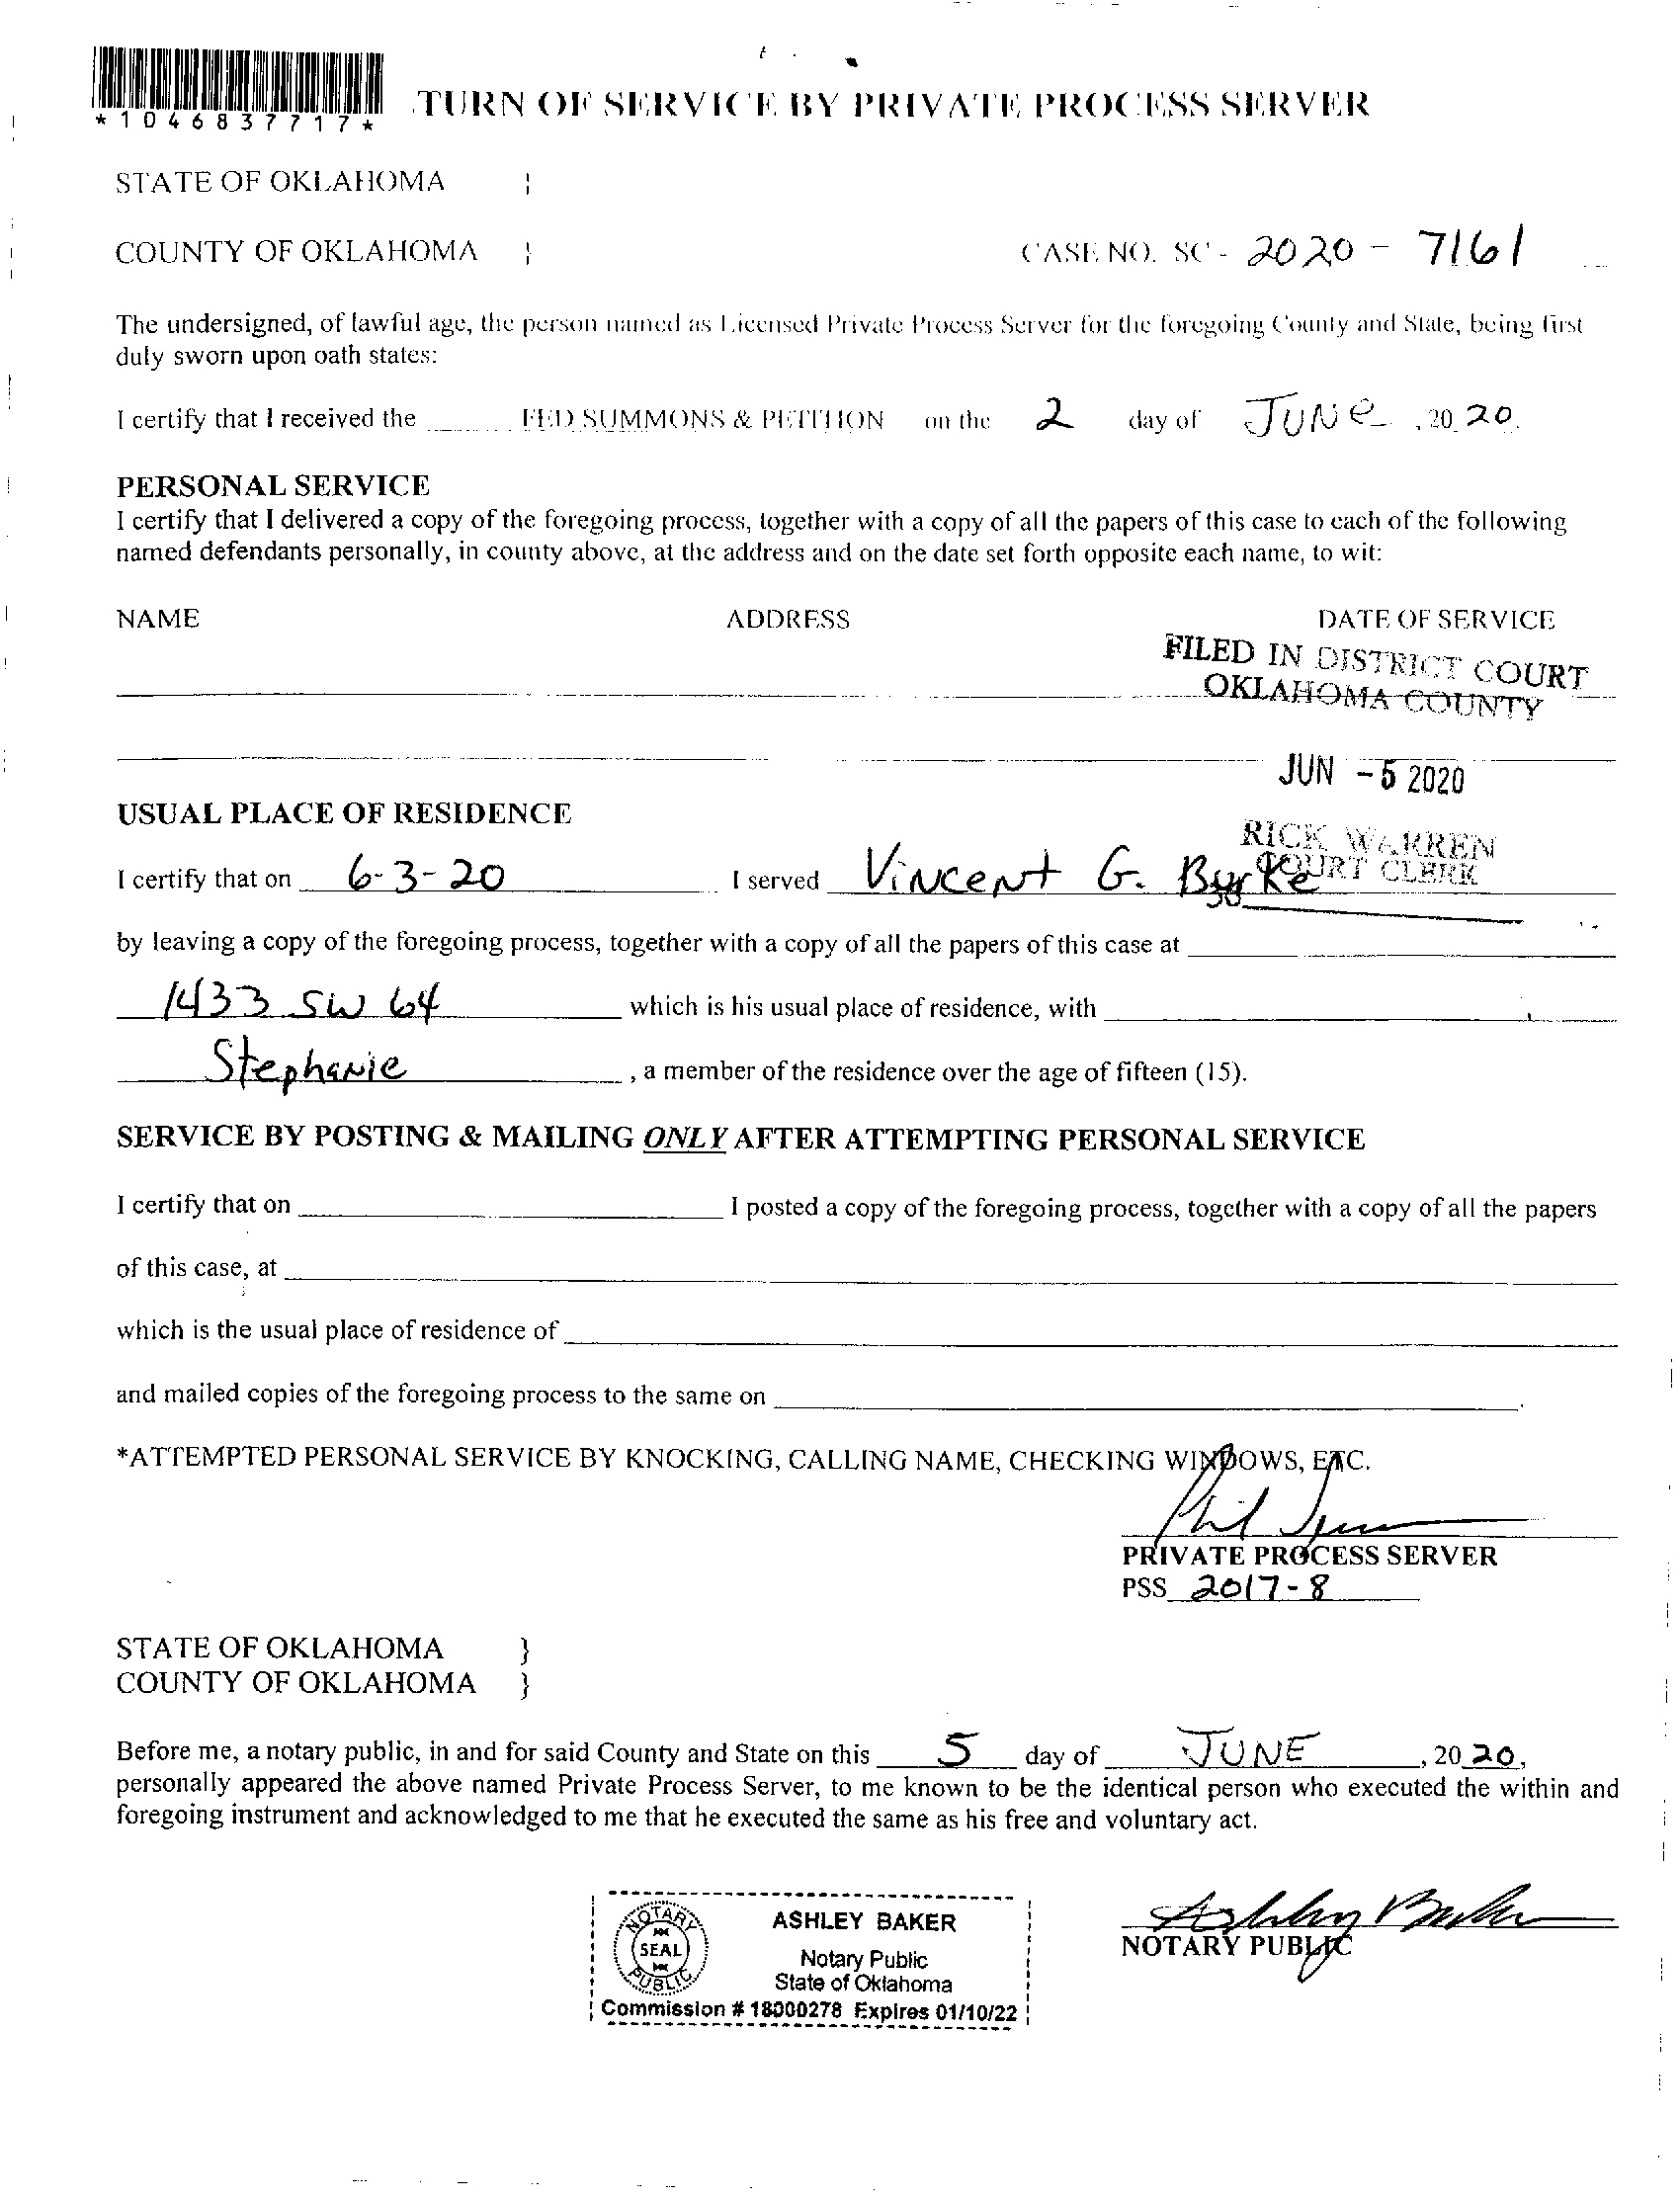 *1046837717*
TURN OF SERVICE BY PRIVATE PROCESS SERVER
STATE OF OKLAHOMA }
COUNTY OF OKLAHOMA } CASE NO. SC - 2020 - 7161
The undersigned, of lawful age, the person named as Licensed Private Process Server for the foregoing County and State, being first
duly sworn upon oath states:
I certify that I received the FED SUMMONS & PETITION on the 2 day of JUNE, 20 20.
PERSONAL SERVICE
I certify that I delivered a copy of the foregoing process, together with a copy of all the papers of this case to each of the following
named defendants personally, in county above, at the address and on the date set forth opposite each name, to wit:
NAME ADDRESS DATE OF SERVICE
FILED IN DISTRICT COURT
OKLAHOMA COUNTY
JUN - 5 2020
USUAL PLACE OF RESIDENCE
RICK WARREN
COURT CLERK
I certify that on 6-3-20 I served Vincent G. Byrke
by leaving a copy of the foregoing process, together with a copy of all the papers of this case at
1433 SW 64 which is his usual place of residence, with
Stephanie, a member of the residence over the age of fifteen (15).
SERVICE BY POSTING & MAILING ONLY AFTER ATTEMPTING PERSONAL SERVICE
I certify that on I posted a copy of the foregoing process, together with a copy of all the papers
of this case, at
which is the usual place of residence of
and mailed copies of the foregoing process to the same on .
*ATTEMPTED PERSONAL SERVICE BY KNOCKING, CALLING NAME, CHECKING WINDOWS, ETC.
PRIVATE PROCESS SERVER
PSS 2017-8
STATE OF OKLAHOMA }
COUNTY OF OKLAHOMA }
Before me, a notary public, in and for said County and State on this 5 day of JUNE, 20 20,
personally appeared the above named Private Process Server, to me known to be the identical person who executed the within and
foregoing instrument and acknowledged to me that he executed the same as his free and voluntary act.
NOTARY PUBLIC SEAL
ASHLEY BAKER
Notary Public
State of Oklahoma
Commission # 18000278 Expires 01/10/22
Ashley Baker
NOTARY PUBLIC